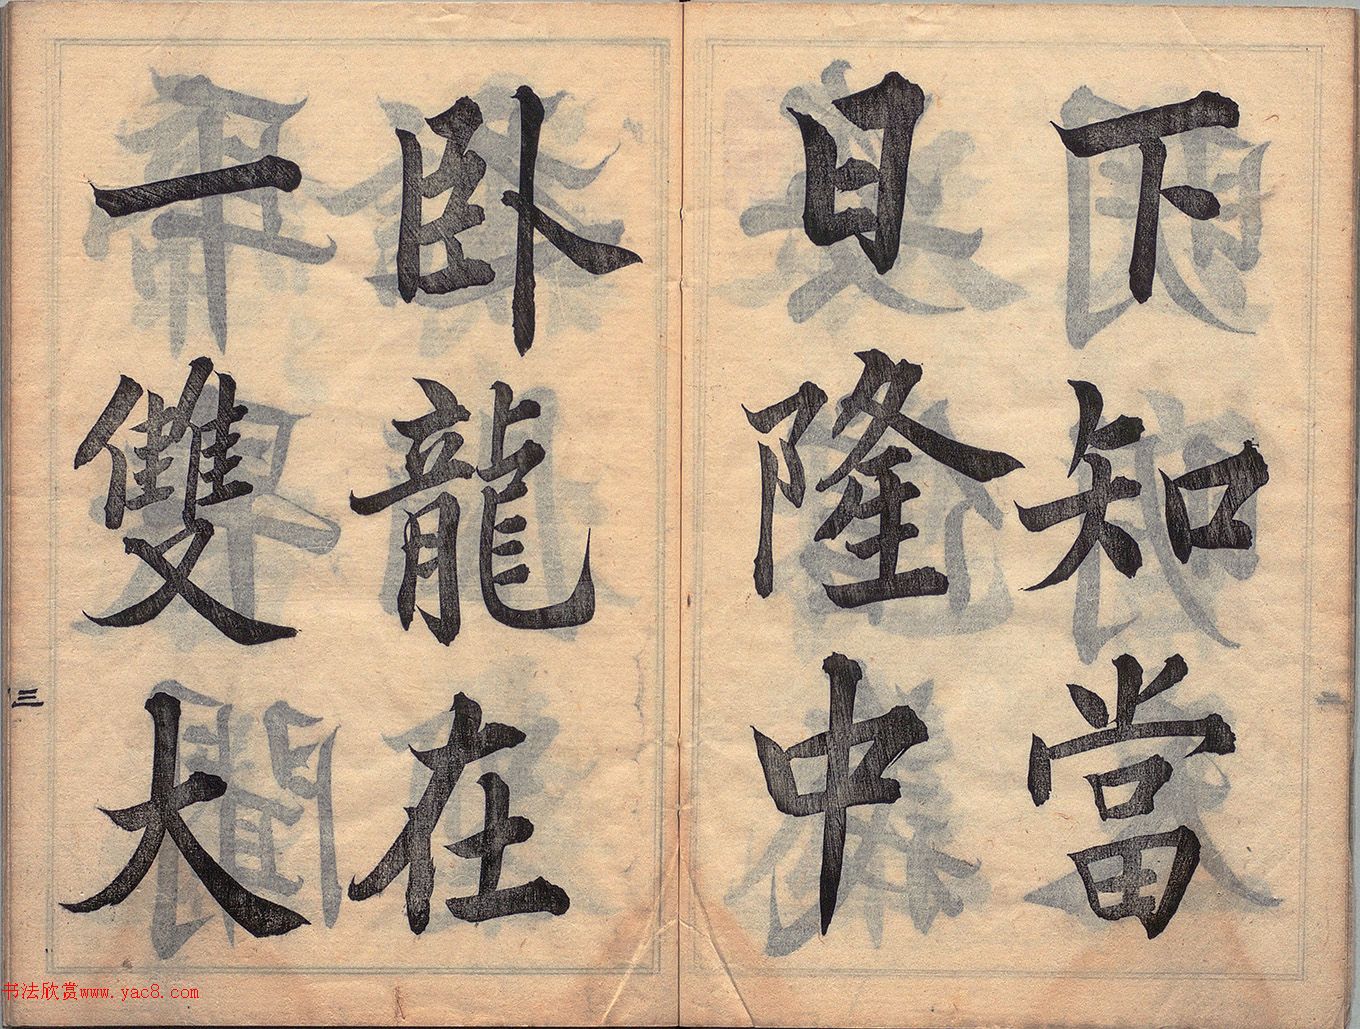 下知當
日隆中
卧龍在
一雙大
三
书法欣赏www.yac8.com